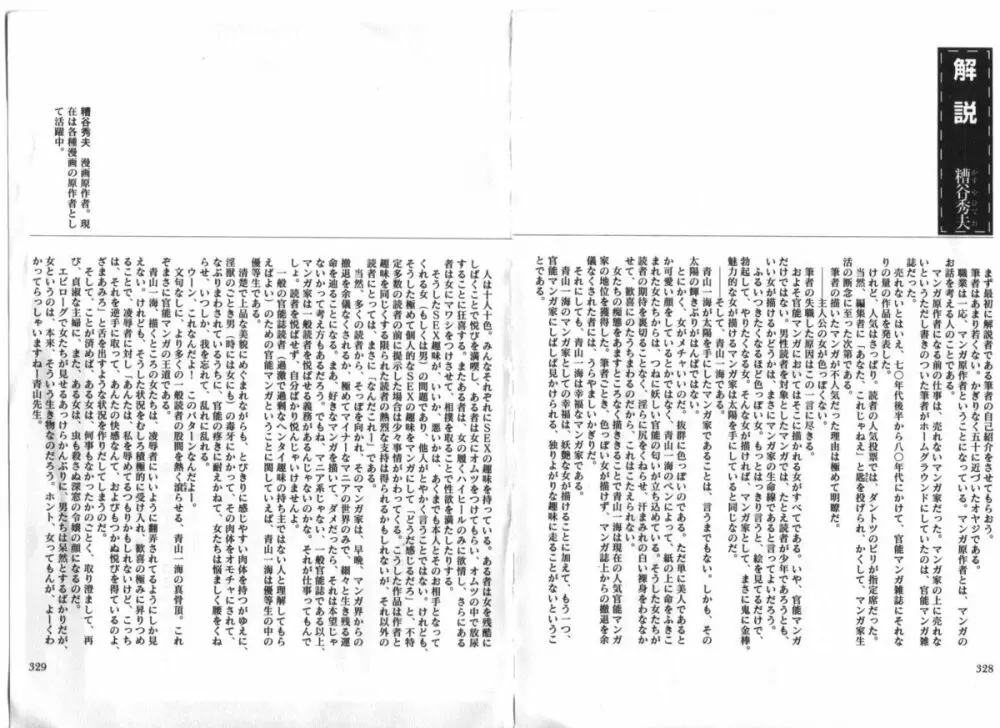 解説
かすやひでお
糟谷秀夫
まず最初に解説者である筆者の自己紹介をさせてもらおう。
筆者はあまり若くない。限りなく五十に近づいたオヤジである。
職業は一応、マンガ原作者ということになっている。マンガ原作者とは、マンガの
お話を考える人のことである。
マンガ原作者になる前の仕事は、売れないマンガ家だった。マンガ家の上に売れな
いというただし書きのついていた筆者がホームグラウンドにしていたのは、官能マンガ雑
誌だった。
売れないとはいえ、七〇年代後半から八〇年代にかけて、官能マンガ雑誌にそれな
りの量の作品を発表した。
けれど、人気はさっぱり。読者の人気投票では、ダントツのビリが指定席だった。
当然、編集者に「あなた、これじゃねえ」と匙を投げられ、かくして、マンガ家生
活の断念に至った次第である。
筆者の描いたマンガが不人気だった理由は極めて明瞭だ。
主人公の女が色っぽくない。
筆者の失職した原因はこの一言に尽きる。
およそ官能マンガにおいてはそこに描かれる女がすべてである。いや、官能マンガ
だけではない。男性読者を対象としたマンガではたとえ読者が少年であろうとも、
いい女が描けるかどうかは、まさにマンガ家の生命線であると言ってよいだろう。
ふるいつきたくなるほど色っぽい女。もっとはっきり言うと、絵を見てるだけで、
勃起して、やりたくなる女。そんな女が描ければ、マンガ家として、まさに鬼に金棒。
魅力的な女が描けるマンガ家は太陽を手にしていると同じなのだ。
そして、青山一海である。
青山一海が太陽を手にしたマンガ家であることは、言うまでもない。しかも、その
太陽の輝きがはんぱではない。
とにかく、女がメチャいいのだ。抜群に色っぽいのである。ただ単に美人であると
か可愛い顔をしているとかではなく、青山一海のペンによって、紙の上に命をふきこ
まれた女たちからは、つねに妖しい官能の匂いが立ち込めている。そうした女たちが
読者の期待を裏切ることなく、淫らに尻をくねらせ、汗まみれの白い裸身をわななか
せて、歓喜にのたうちまわるのだから、これはこたえられない。
女たちの痴態をあますところなく描ききることで青山一海は現在の人気官能マンガ
家の地位を獲得した。筆者のごとき、色っぽい女が描けず、マンガ誌上からの撤退を余
儀なくされた者には、うらやましいかぎりだ。
それにしても、青山一海は幸福なマンガ家である。
青山一海のマンガ家としての幸福は、妖艶な女が描けることに加えて、もう一つ、
官能マンガ家にしばしば見かけられる、独りよがりな趣味に走ることがないというこ
とである。
328
人は十人十色。みんなそれぞれにSEXの趣味を持っている。ある者は女を残酷に
しばくことで悦びを満喫し、ある者は女にオムツをつけてもらい、オムツの中で放尿
することに狂喜する。またある者は、女の履くハイヒールのみに欲情し、さらにある
者は女にマワシをつけさせて、相撲を取ることで性欲を満たしたりする。
そうしたSEX趣味が、いいか、悪いかは、あくまでも本人とそのお相手となって
くれる女(もしくは男)の問題であり、他人がとやかく言うことではない。けれども、
そうした極めて個人的なSEXの趣味をマンガにして「どうだ感じるだろ」と、不特
定多数の読者の前に提示した場合は少々事情がかわってくる。こうした作品は作者と
趣味を同じくする限られた読者の熱烈な支持は得られるかもしれないが、それ以外の
読者にとっては、まさに「なんだこれ!」である。
当然、多くの読者から、そっぽを向かれ、そのマンガ家は、早晩、マンガ界からの
撤退を余儀なくされるか、極めてマイナーなマニアの世界のみで、細々と生き残る運
命を辿ることになる。まあ、好きなマンガを描いて、ダメだったら、それは本望じゃ
ないかって考え方もあるだろう。でもね、マニア系じゃない、一般官能誌である以上、
マンガ家は、一般読者を悦ばせる義務があるんじゃないの。それが仕事ってもんで
しょ。読者を悦ばせず、自分ばかり悦んじゃいけませんよ。
一般の官能誌読者(過激で過剰なヘンタイ趣味の持ち主ではない人と理解してもら
えばよい)のための官能マンガということに関していえば、青山一海は優等生の中の
優等生である。
清楚で上品な美貌にめぐまれながらも、とびきりに感じやすい肉体を持つがゆえに、
淫獣のごとき男(一時には女にも)の毒牙にかかって、その肉体をオモチャにされて、
なぶりまわされているうちに、官能の疼きに耐えかねて、女たちは悩ましく腰をくね
らせ、いつしか、我を忘れて、乱れに乱れる。
ウーン、これなんだよ!このパターンなんだよー。
文句なしに、より多くの一般読者の股間を熱く滾らせる、青山一海の真骨頂。これ
ぞまさに官能マンガの王道である。
青山一海の描くところの女たちは、凌辱者にいいように翻弄されてるようにしか見
えない。けれども、そうした状況をむしろ積極的に受け入れ、歓喜の極みに昇りつめ
ることで、凌辱者に対し「あんたは、私を辱めてるつもりかもしれないけど、こっち
は、それを逆手に取って、あんたの快感なんて、およびもつかぬ悦びを得ているのよ、
ざまあみろ」と舌を出すような状況を作りだしてしまうのだ。
そして、ことが済めば、ある女は、何事もなかったかのごとく、取り澄まして、再
び、貞淑な主婦に、また、ある女は、虫も殺さぬ深窓の令嬢の顔になるのだ。
エピローグで女たちが見せるあっけらかんぶりに、男たちは呆然とするばかりだが、
女というのは、本来、そういう生き物なのだろう。ホント、女ってもんが、よーくわ
かってらっしゃいますね!青山先生。
糟谷秀夫 漫画原作者。現
在は各種漫画の原作者とし
て活躍中。
329